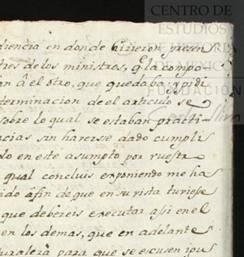 CENTRO DE
ESTUDIOS
diencia en donde hizieron presen
tres de los ministros, q.e la compo
an â el otro, que quedaba, y pidi
determinacion de el articulo se
sobre lo qual se estaban practi
cias sin haverse dado cumpli
do en este asumpto por vuestra
qual concluis exponiendo me ha
ido âfin de que en su vista tuviese
que debereis executar asi en el
en los demas, que en adelante
uraleza para que se escusen iqu